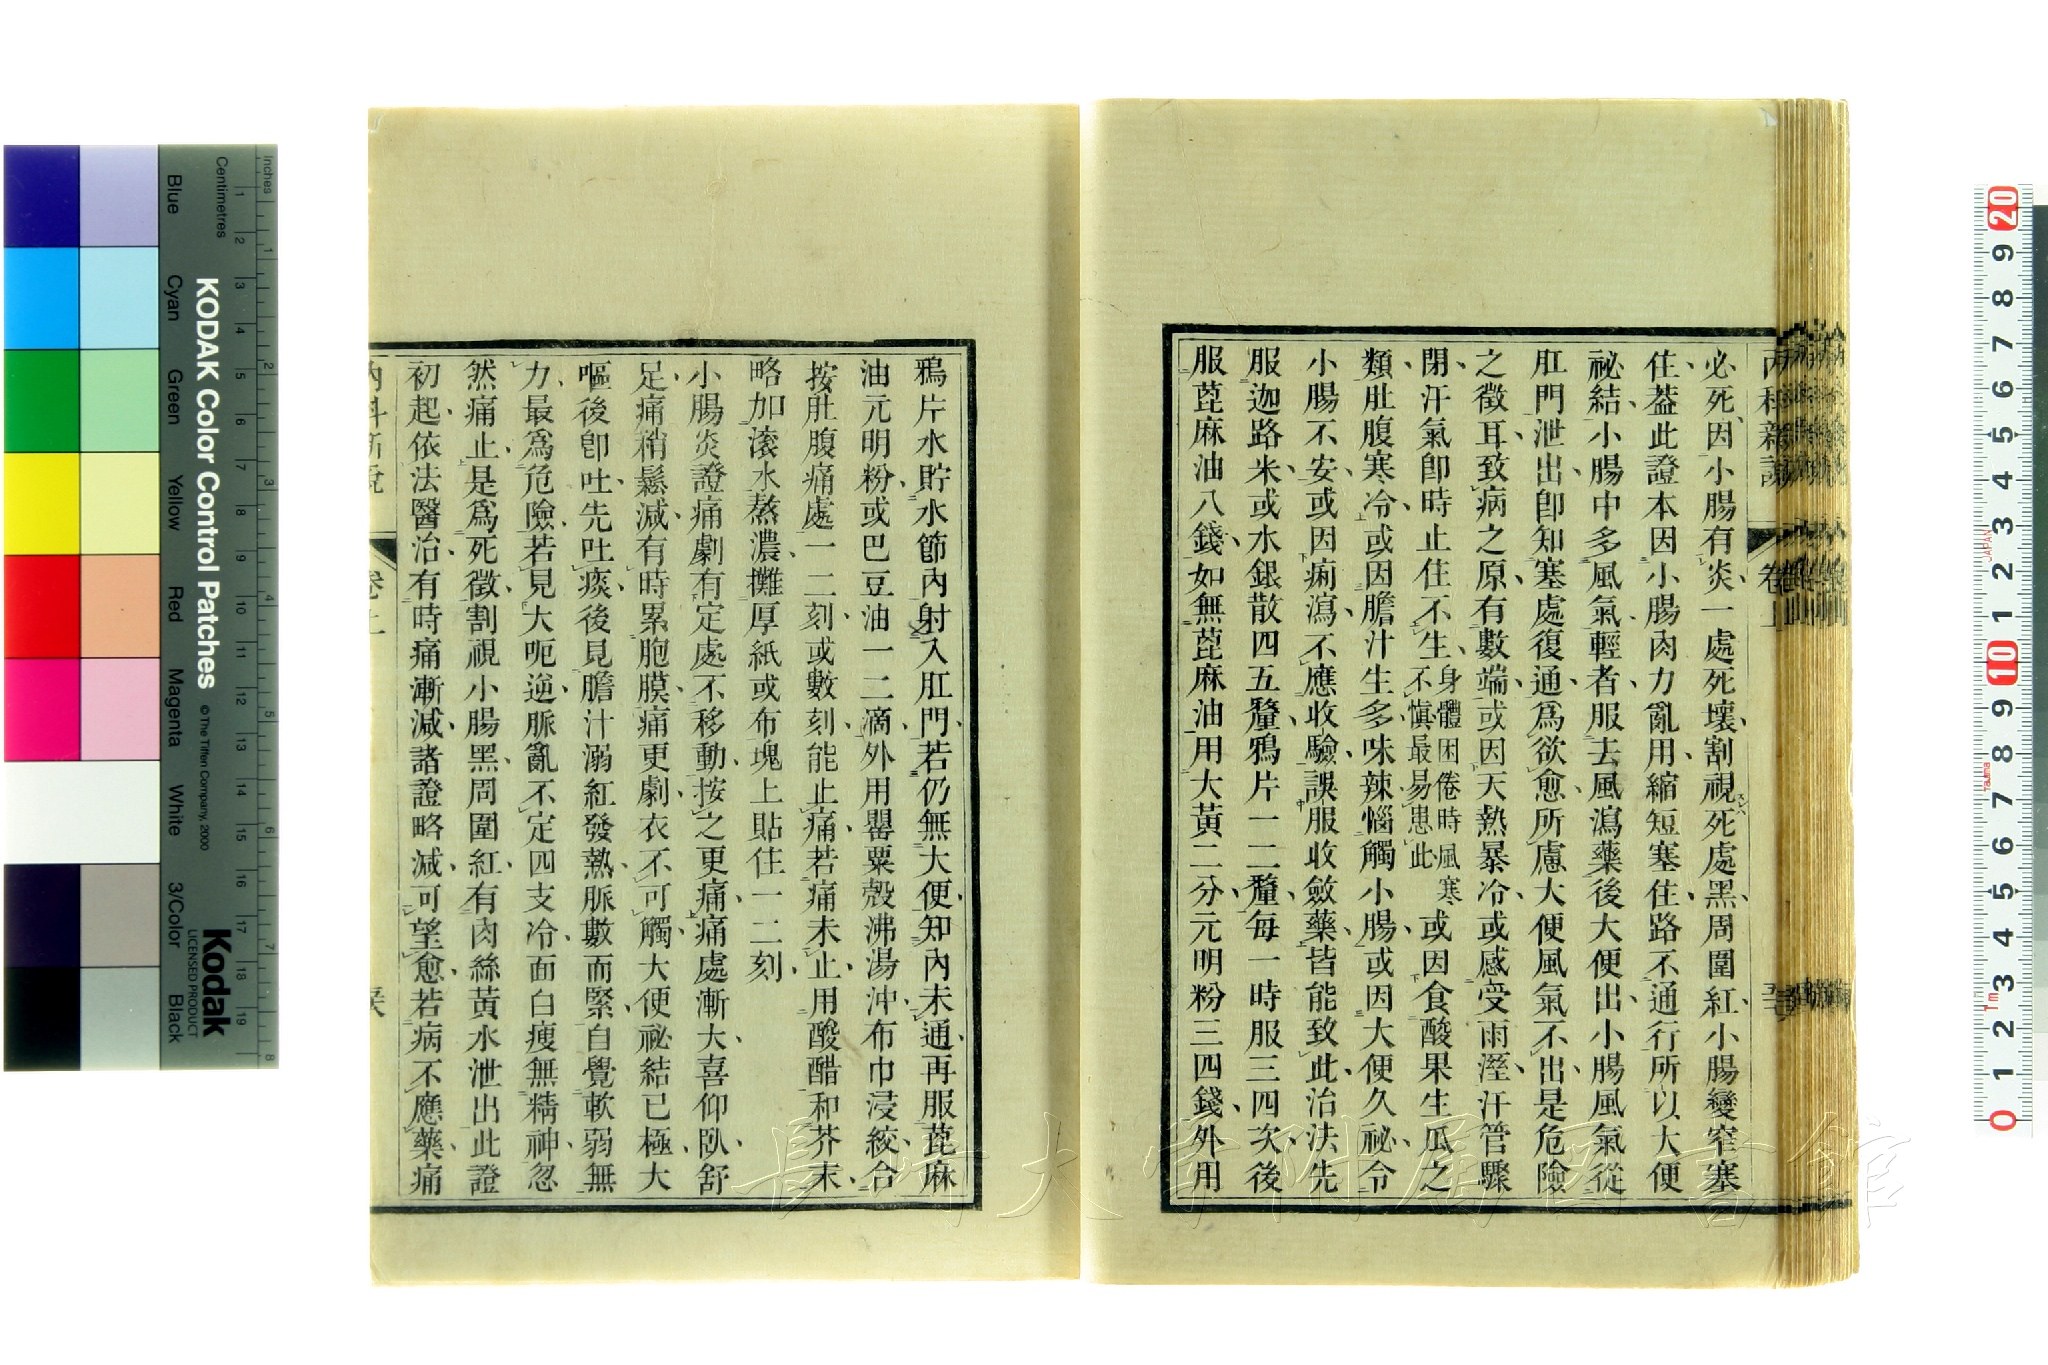 必死因小腸有炎一處死壞割視死處黑周圍紅小腸變窄塞
住葢此證本因小腸肉力亂用縮短塞住路不通行所以大便
祕結小腸中多風氣輕者服去風瀉藥後大便出小腸風氣從
肛門泄出卽知塞處復通爲欲愈所慮大便風氣不出是危險
之徵耳致病之原有數端或因天熱暴冷或感受雨溼汗管驟
閉汗氣卽時止住不生身體困倦時風寒不愼最易患此或因食酸果生瓜之
類肚腹寒冷或因膽汁生多味辣惱觸小腸或因大便久祕令
小腸不安或因痢瀉不應收驗誤服收斂藥皆能致此治法先
服迦路米或水銀散四五釐鴉片一二釐每一時服三四次後
服蓖麻油八錢如無蓖麻油用大黃二分元明粉三四錢外用
鴉片水貯水節內射入肛門若仍無大便知內未通再服蓖麻
油元明粉或巴豆油一二滴外用罌粟殼沸湯沖布巾浸絞合
按肚腹痛處一二刻或數刻能止痛若痛未止用酸醋和芥末
略加滚水熬濃攤厚紙或布塊上貼住一二刻
小腸炎證痛劇有定處不移動按之更痛痛處漸大喜仰臥舒
足痛稍鬆減有時累胞膜痛更劇衣不可觸大便祕結已極大
嘔後卽吐先吐痰後見膽汁溺紅發熱脈數而緊自覺軟弱無
力最爲危險若見大呃逆脈亂不定四支冷面白瘦無精神忽
然痛止是爲死徵割視小腸黑周圍紅有肉絲黃水泄出此證
初起依法醫治有時痛漸減諸證略減可望愈若病不應藥痛
長崎大学附属図書館
Inches
Centimetres
KODAK Color Control Patches
© The Tiffen Company, 2000
Kodak
LICENSED PRODUCT
Blue
Cyan
Green
Yellow
Red
Magenta
White
3/Color
Black